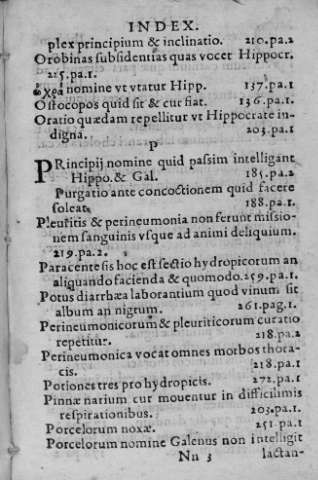 INDEX.
plex principium & inclinatio. 210.pa.2
Orobinas subsidentias quas vocet Hippocr.
215.pa.1.
ὠχρὰ nomine vt vtatur Hipp. 137.pa.1
Ostocopos quid sit & cur fiat. 136.pa.1
Oratio quædam repellitur vt Hippocrate in-
digna. 203.pa.1
P
PRincipij nomine quid passim intelligant
Hippo.& Gal. 185.pa.2
Purgatio ante concoctionem quid facere
soleat. 188.pa.1
Pleuritis & perineumonia non ferunt missio-
nem sanguinis vsque ad animi deliquium.
219.pa.2.
Paracentesis hoc est sectio hydropicorum an
aliquando facienda & quomodo.259.pa.1
Potus diarrhæa laborantium quod vinum sit
album an nigrum. 261.pag.1
Perineumonicorum & pleuriticorum curatio
repetitur. 218.pa.2
Perineumonica vocat omnes morbos thora-
cis. 218.pa.1
Potiones tres pro hydropicis. 272.pa.1
Pinnæ narium cur mouentur in difficilimis
respirationibus. 203.pa.1
Porcelorum noxæ. 251.pa.1
Porcelorum nomine Galenus non intelligit
Nn 3 lactan-